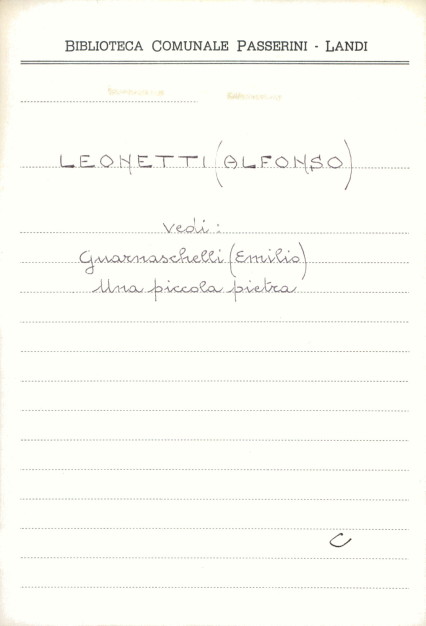 BIBLIOTECA COMUNALE PASSERINI - LANDI
LEONETTI (ALFONSO)
vedi:
Guarnaschelli (Emilio)
Una piccola pietra
C